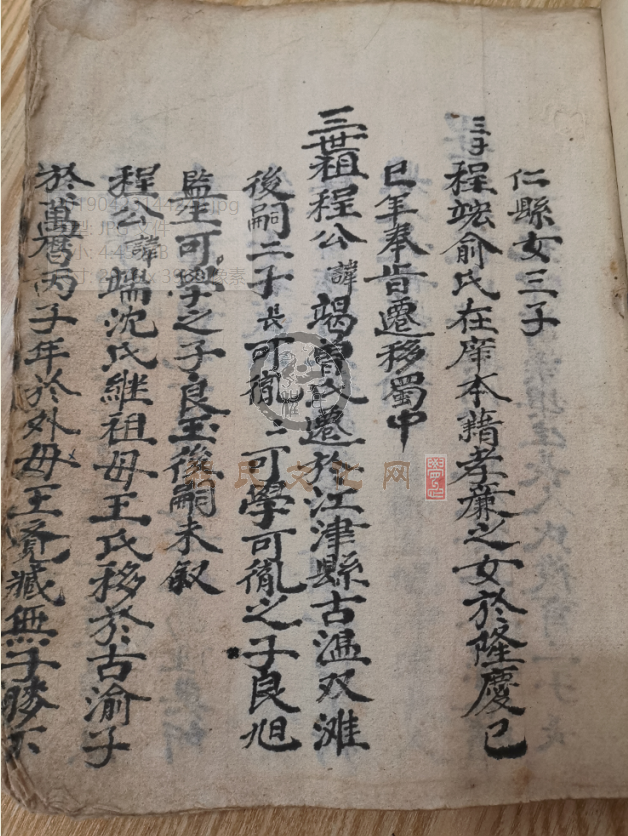 仁縣女三子
三子程竤俞氏在庠本籍孝廉之女於隆慶已
巳年奉旨遷移蜀中
三世祖程公諱竭曾又遷於江津縣古温双滩
後嗣二子長可胤二可學可胤之子良旭
監生可學之子良玉後嗣未叙
程公諱端沈氏継祖母王氏移於古渝子
於萬曆丙子年於外母王賓藏無子勝不
氏文化网